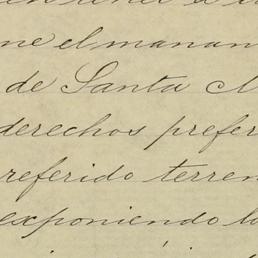 ne el manan
de Santa M
derechos prefer
referido terren
exponiendo lo